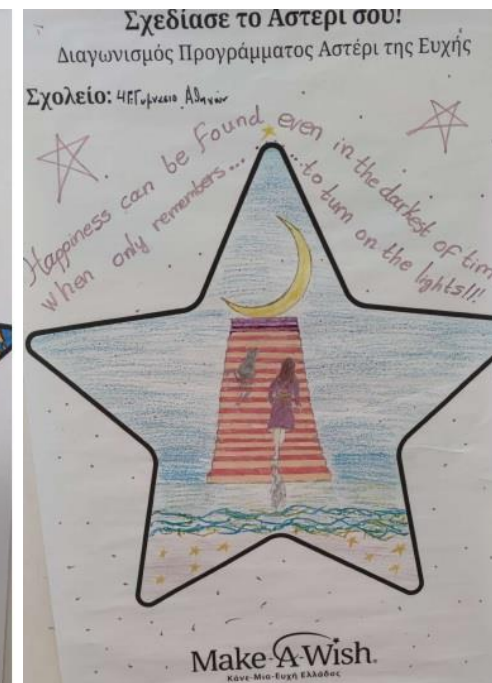 Σχεδίασε το Αστέρι σου!
Διαγωνισμός Προγράμματος Αστέρι της Ευχής
Σχολείο: Γυμνάσιο Αθηνών
Happiness can be found even in the darkest of tim
when only remembers... ...to turn on the lights!!!
Make-A-Wish®
Κάνε-Μια-Ευχή Ελλάδος